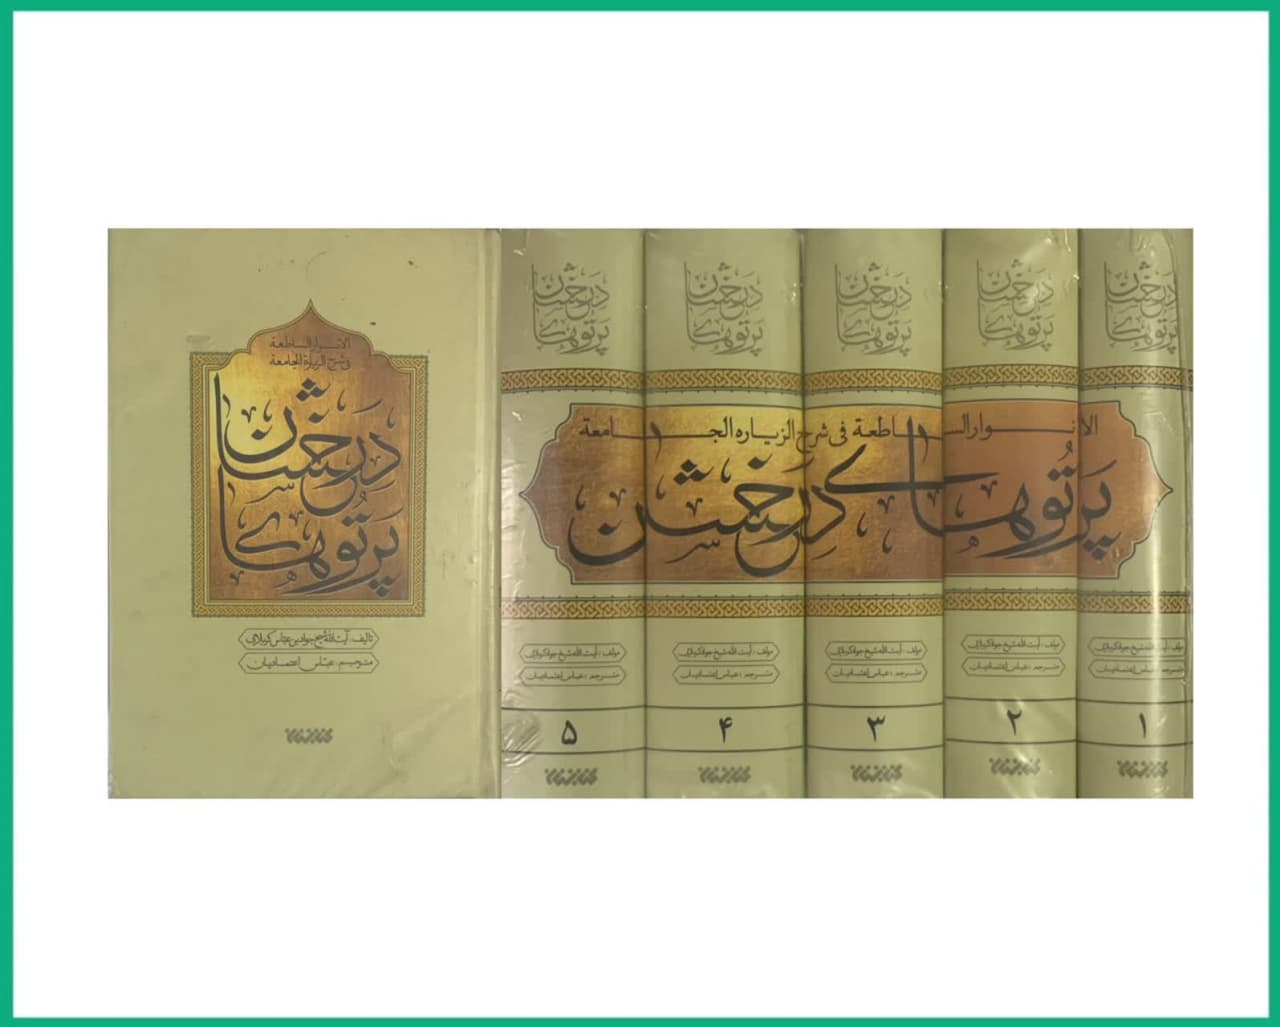 الانوار الساطعة
فی شرح الزیارة الجامعة
پرتوهای درخشان
تألیف: آیت الله شیخ جواد بن عباس کربلائی
مترجم: عباس اعتمادیان
پرتوهای درخشان
پرتوهای درخشان
پرتوهای درخشان
پرتوهای درخشان
پرتوهای درخشان
الانوار الساطعة فی شرح الزیاره الجامعة
پرتوهای درخشان
مولف: آیت الله شیخ جواد کربلائی
مترجم: عباس اعتمادیان
مولف: آیت الله شیخ جواد کربلائی
مترجم: عباس اعتمادیان
مولف: آیت الله شیخ جواد کربلائی
مترجم: عباس اعتمادیان
مولف: آیت الله شیخ جواد کربلائی
مترجم: عباس اعتمادیان
مولف: آیت الله شیخ جواد کربلائی
مترجم: عباس اعتمادیان
۱
۲
۳
۴
۵